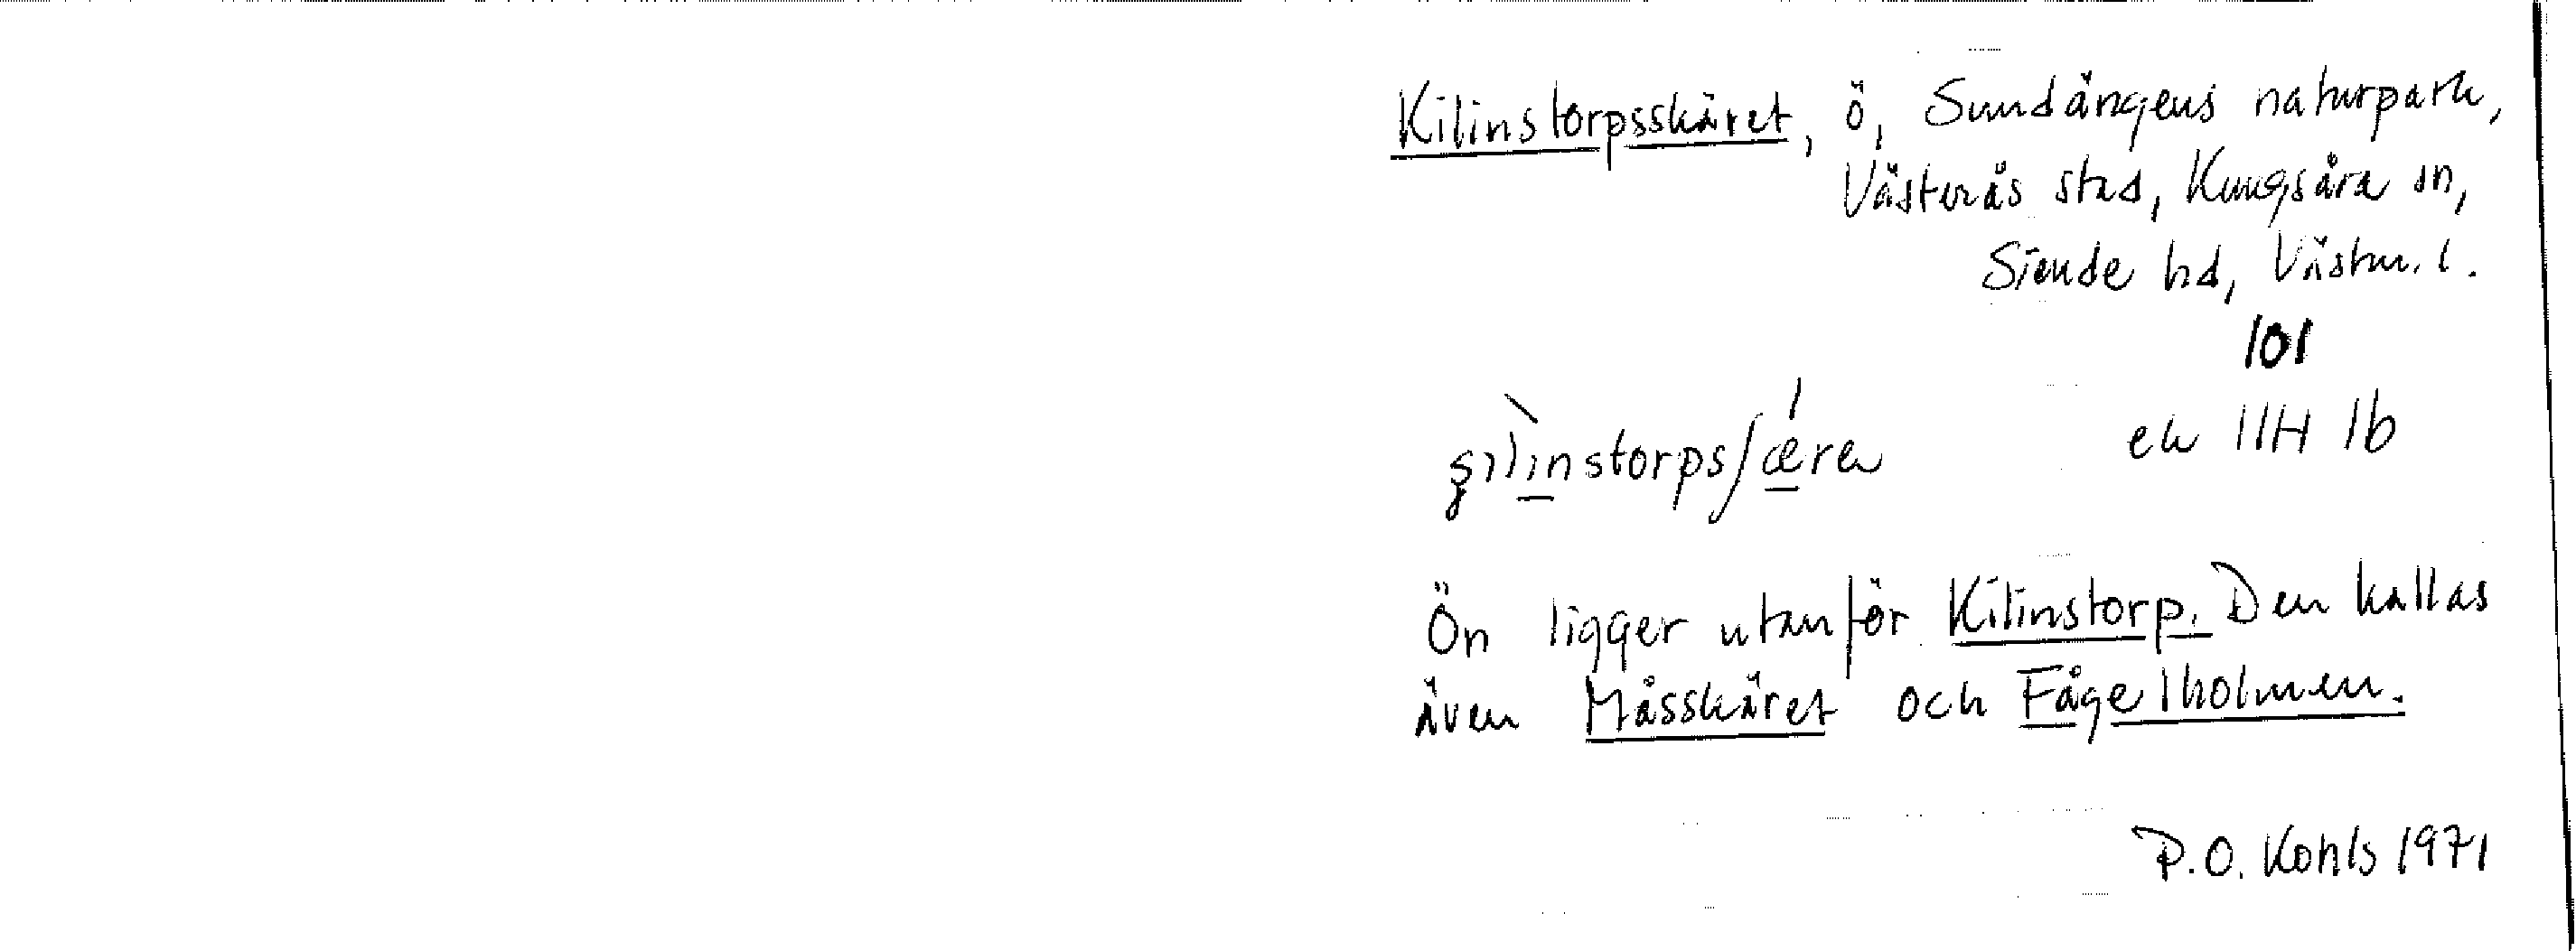 Kilinstorpsskäret, ö, Sundängens naturpark,
Västerås stad, Kungsåra sn,
Siende hd, Västm. l.
101
ek 11H 1b
Ön ligger utanför Kilinstorp. Den kallas
även Måsskäret och Fågelholmen.
P.O. Kohls 1971